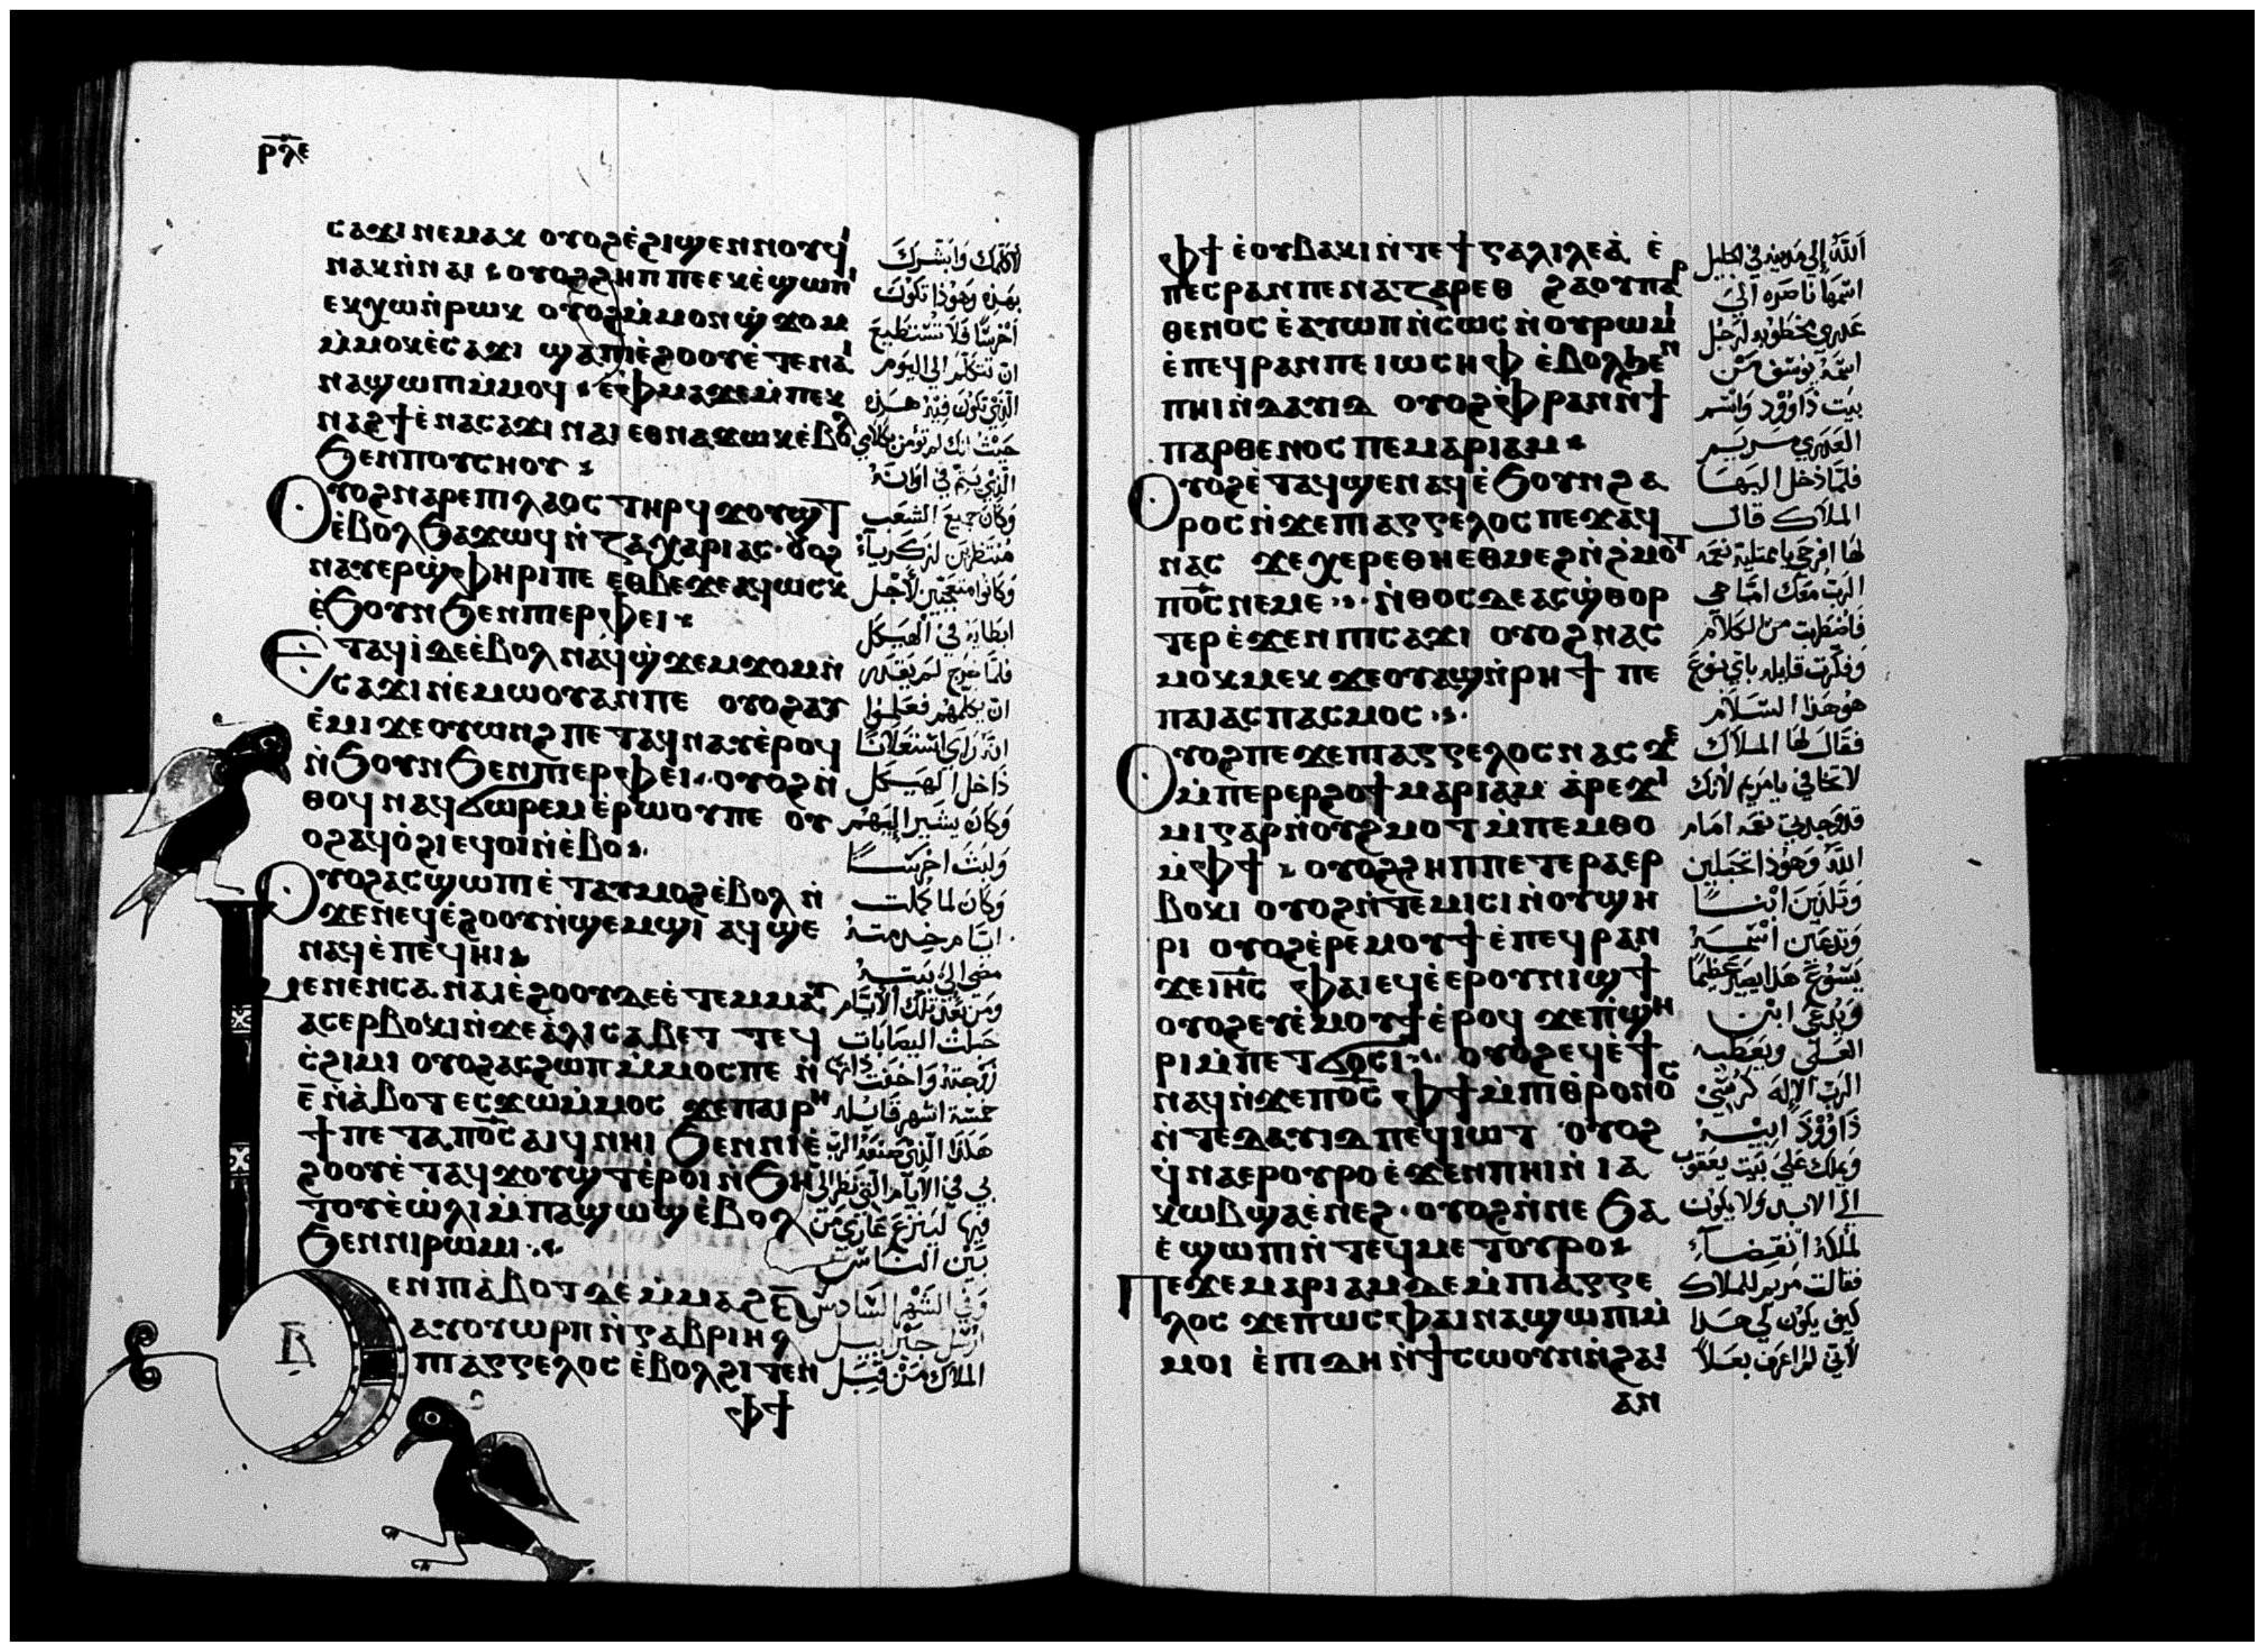 ⲣⲗⲉ
ⲥⲁϫⲓ ⲛⲉⲙⲁⲕ ⲟⲩⲟϩ ⲉ̀ϩⲓϣⲉⲛⲛⲟⲩϥⲓ
ⲛⲁⲕ ⲛ̀ⲛⲁⲓ ⲟⲩⲟϩ ϩⲏⲡⲡⲉ ⲉⲕⲉ̀ϣⲱⲡⲓ
ⲉⲕⲭⲱ ⲛ̀ⲣⲱⲕ ⲟⲩⲟϩ ⲙ̀ⲙⲟⲛ ϣ̀ϫⲟⲙ
ⲙ̀ⲙⲟⲕ ⲉ̀ⲥⲁϫⲓ ϣⲁ ⲡⲓⲉ̀ϩⲟⲟⲩ ⲉ̀ⲧⲉ ⲛⲁⲓ
ⲛⲁϣⲱⲡⲓ ⲙ̀ⲙⲟϥ ⲉ̀ⲫⲙⲁ ϫⲉ ⲙ̀ⲡⲉⲕ
ⲛⲁϩϯ ⲉ̀ⲛⲁⲥⲁϫⲓ ⲛⲁⲓ ⲉⲑⲛⲁϫⲱⲕ ⲉ̀ⲃⲟⲗ
ϧⲉⲛ ⲡⲟⲩⲥⲏⲟⲩ
ⲟⲩⲟϩ ⲛⲁⲣⲉ ⲡⲓⲗⲁⲟⲥ ⲧⲏⲣϥ ϫⲟⲩϣⲧ
ⲉ̀ⲃⲟⲗ ϧⲁϫⲱϥ ⲛ̀ ⲍⲁⲭⲁⲣⲓⲁⲥ ⲟⲩⲟϩ
ⲛⲁⲩⲉⲣϣ̀ⲫⲏⲣⲓ ⲡⲉ ⲉⲑⲃⲉ ϫⲉ ⲁϥⲱⲥⲕ
ⲉ̀ϧⲟⲩⲛ ϧⲉⲛ ⲡⲓⲉⲣⲫⲉⲓ
ⲉⲧⲁϥⲓ̀ ⲇⲉ ⲉ̀ⲃⲟⲗ ⲛⲁϥϣ̀ϫⲉⲙϫⲟⲙ ⲛ̀
ⲥⲁϫⲓ ⲛⲉⲙⲱⲟⲩ ⲁⲛ ⲡⲉ ⲟⲩⲟϩ ⲁⲩ
ⲉ̀ⲙⲓ ϫⲉ ⲟⲩⲱⲛϩ ⲡⲉⲧⲁϥⲛⲁⲩ ⲉ̀ⲣⲟϥ
ⲛ̀ϧⲟⲩⲛ ϧⲉⲛ ⲡⲓⲉⲣⲫⲉⲓ ⲟⲩⲟϩ ⲛ̀
ⲑⲟϥ ⲛⲁϥϭⲱⲣⲉⲙ ⲉ̀ⲣⲱⲟⲩ ⲡⲉ ⲟⲩ
ⲟϩ ⲁϥⲟ̀ϩⲓ ⲉϥⲟⲓ ⲛ̀ⲉ̀ⲃⲟ
ⲟⲩⲟϩ ⲁⲥϣⲱⲡⲓ ⲉ̀ⲧⲁⲩⲙⲟϩ ⲉ̀ⲃⲟⲗ ⲛ̀
ϫⲉ ⲛⲉϥⲉ̀ϩⲟⲟⲩ ⲛ̀ϣⲉⲙϣⲓ ⲁϥϣⲉ
ⲛⲁϥ ⲉ̀ⲡⲉϥⲏⲓ
ⲙⲉⲛⲉⲛⲥⲁ ⲛⲁⲓⲉ̀ϩⲟⲟⲩ ⲇⲉ ⲉ̀ⲧⲉⲙⲙⲁⲩ
ⲁⲥⲉⲣⲃⲟⲕⲓ ⲛ̀ϫⲉ ⲁ̀ⲗⲓⲥⲁⲃⲉⲧ ⲧⲉϥ
ⲥ̀ϩⲓⲙⲓ ⲟⲩⲟϩ ⲁⲥϩⲱⲡ ⲙ̀ⲙⲟⲥ ⲡⲉ ⲛ̀
ⲉ̅ ⲛ̀ⲁ̀ⲃⲟⲧ ⲉⲥϫⲱ ⲙ̀ⲙⲟⲥ ϫⲉ ⲡⲁⲓⲣⲏ
ϯ ⲡⲉⲧⲁ ⲡⲟ̅ⲥ̅ ⲁⲓϥ ⲛⲏⲓ ϧⲉⲛ ⲛⲓⲉ̀
ϩⲟⲟⲩ ⲉ̀ⲧⲁϥϫⲟⲩϣⲧ ⲉ̀ⲣⲟⲓ ⲛ̀ϧⲏ
ⲧⲟⲩ ⲉ̀ⲱ̀ⲗⲓ ⲙ̀ⲡⲁϣⲱϣ ⲉ̀ⲃⲟⲗ
ϧⲉⲛ ⲛⲓⲣⲱⲙⲓ
ⲃ̅
ϧⲉⲛ ⲡⲓⲁ̀ⲃⲟⲧ ⲇⲉ ⲙ̀ⲙⲁϩ ⲋ̅
ⲁⲩⲟⲩⲱⲣⲡ ⲛ̀ⲅⲁⲃⲣⲓⲏⲗ
ⲡⲓⲁⲅⲅⲉⲗⲟⲥ ⲉ̀ⲃⲟⲗϩⲓⲧⲉⲛ
ⲫϯ
لاكلمك وابشرك
بهذه وهوذا تكون
اخرسًا فلا تستطيع
ان تتكلم الي اليوم
الذي تكون فيه هذه
حيث انك لم تؤمن بكلامي
الذي يتم في اوانه
وكان جميع الشعب
منتظرين لزكرياء
وكانوا متعجبين لاجل
ابطايه في الهيكل
فلما خرج لم يقدر
ان يكلمهم فعلموا
انه راى استعلانًا
داخل الهيكل
وكان يشير اليهم
ولبث اخرسًا
وكان لما كملت
ايام خدمته
مضى الى بيته
ومن بعد تلك الايام
حبلت اليصابات
زوجته واخفت ذاتها
خمسة اشهر قايله
هكذا الذي صنعه الرب
لي في الايام التي نظر الي
فيها لينزع عاري من
بين الناس
وفي الشهر السادس
ارسل جبراييل
الملاك من قبل
ⲫϯ ⲉ̀ⲟⲩⲃⲁⲕⲓ ⲛ̀ⲧⲉ ϯⲅⲁⲗⲓⲗⲉⲁ̀ ⲉ̀
ⲡⲉⲥⲣⲁⲛ ⲡⲉ ⲛⲁⲍⲁⲣⲉⲑ ϩⲁ ⲟⲩⲡⲁⲣ
ⲑⲉⲛⲟⲥ ⲉ̀ⲁⲩⲱⲡ ⲛ̀ⲥⲱⲥ ⲛ̀ⲟⲩⲣⲱⲙⲓ
ⲉ̀ⲡⲉϥⲣⲁⲛ ⲡⲉ ⲓⲱⲥⲏⲫ ⲉ̀ⲃⲟⲗϧⲉⲛ
ⲡⲏⲓ ⲛ̀ⲇⲁⲩⲓⲇ ⲟⲩⲟϩ ⲉ̀ⲫⲣⲁⲛ ⲛ̀ϯ
ⲡⲁⲣⲑⲉⲛⲟⲥ ⲡⲉ ⲙⲁⲣⲓⲁⲙ
ⲟⲩⲟϩ ⲉ̀ⲧⲁϥϣⲉ ⲛⲁϥ ⲉ̀ϧⲟⲩⲛ ϩⲁ
ⲣⲟⲥ ⲛ̀ϫⲉ ⲡⲓⲁⲅⲅⲉⲗⲟⲥ ⲡⲉϫⲁϥ
ⲛⲁⲥ ϫⲉ ⲭⲉⲣⲉ ⲑⲏⲉⲑⲙⲉϩ ⲛ̀ϩ̀ⲙⲟⲧ
ⲡⲟ̅ⲥ̅ ⲛⲉⲙⲉ ⲛ̀ⲑⲟⲥ ⲇⲉ ⲁⲥϣ̀ⲑⲟⲣ
ⲧⲉⲣ ⲉ̀ϫⲉⲛ ⲡⲓⲥⲁϫⲓ ⲟⲩⲟϩ ⲛⲁⲥ
ⲙⲟⲕⲙⲉⲕ ϫⲉ ⲟⲩⲁϣ ⲛ̀ⲣⲏϯ ⲡⲉ
ⲡⲁⲓⲁⲥⲡⲁⲥⲙⲟⲥ
ⲟⲩⲟϩ ⲡⲉϫⲉ ⲡⲓⲁⲅⲅⲉⲗⲟⲥ ⲛⲁⲥ ϫⲉ
ⲙ̀ⲡⲉⲣⲉⲣϩⲟϯ ⲙⲁⲣⲓⲁⲙ ⲁ̀ⲣⲉϫⲓ
ⲙⲓ ⲅⲁⲣ ⲛ̀ⲟⲩϩⲙⲟⲧ ⲙ̀ⲡⲉⲙⲑⲟ
ⲙ̀ⲫϯ ⲟⲩⲟϩ ϩⲏⲡⲡⲉ ⲧⲉⲣⲁⲉⲣ
ⲃⲟⲕⲓ ⲟⲩⲟϩ ⲛ̀ⲧⲉⲙⲓⲥⲓ ⲛ̀ⲟⲩϣⲏ
ⲣⲓ ⲟⲩⲟϩ ⲉ̀ⲣⲉⲙⲟⲩϯ ⲉ̀ⲡⲉϥⲣⲁⲛ
ϫⲉ ⲓⲏ̅ⲥ̅ ⲫⲁⲓ ⲉϥⲉ̀ⲉⲣ ⲟⲩⲛⲓϣϯ
ⲟⲩⲟϩ ⲉⲩⲉ̀ⲙⲟⲩϯ ⲉ̀ⲣⲟϥ ϫⲉ ⲡ̀ϣⲏ
ⲣⲓ ⲙ̀ⲡⲉⲧϭⲟⲥⲓ ⲟⲩⲟϩ ⲉϥⲉ̀ϯ
ⲛⲁϥ ⲛ̀ϫⲉ ⲡⲟ̅ⲥ̅ ⲫϯ ⲙ̀ⲡⲓⲑ̀ⲣⲟⲛⲟⲥ
ⲛ̀ⲧⲉ ⲇⲁⲩⲓⲇ ⲡⲉϥⲓⲱⲧ ⲟⲩⲟϩ
ϥ̀ⲛⲁⲉⲣⲟⲩⲣⲟ ⲉ̀ϫⲉⲛ ⲡⲏⲓ ⲛ̀ⲓⲁ
ⲕⲱⲃ ϣⲁ ⲉ̀ⲛⲉϩ ⲟⲩⲟϩ ⲛ̀ⲛⲉ ϧⲁ
ⲉ̀ ϣⲱⲡⲓ ⲛ̀ⲧⲉϥⲙⲉⲧⲟⲩⲣⲟ
ⲡⲉϫⲉ ⲙⲁⲣⲓⲁⲙ ⲇⲉ ⲙ̀ⲡⲓⲁⲅⲅⲉ
ⲗⲟⲥ ϫⲉ ⲡⲱⲥ ⲫⲁⲓ ⲛⲁϣⲱⲡⲓ ⲙ̀
ⲙⲟⲓ ⲉ̀ⲡⲓⲇⲏ ⲛ̀ϯⲥⲱⲟⲩⲛ ⲛ̀ϩⲁⲓ
ⲁⲛ
الله إلي مدينه في الجليل
اسمها ناصره الي
عذري مخطوبه لرجل
اسمه يوسف من
بيت داوود واسم
العذري مريم
فلما دخل اليها
الملاك قال
لها افرحي يا ممتليه نعمه
الرب معك اما هي
فاضطربت من الكلام
وفكرت قايله باي نوع
هو هذا السلام
فقال لها الملاك
لا تخافي يا مريم لانك
قد وجدتي نعمه امام
الله وهوذا تحبلين
وتلدين ابنًا
وتدعين اسمه
يسوع هذا يصير عظيمًا
ويدعى ابن
العلي ويعطيه
الرب الإله كرسي
داوود ابيه
ويملك علي بيت يعقوب
الي الابد ولا يكون
لملكه انقضاء
فقالت مريم للملاك
كيف يكون لي هذا
لأني لم اعرف بعلاً